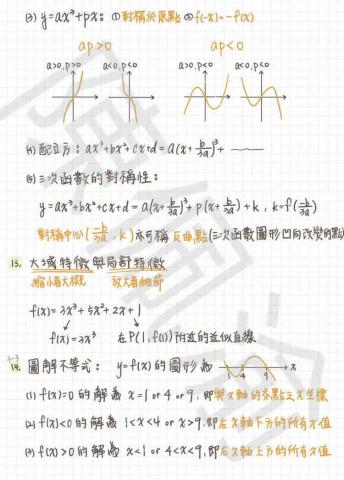 (3) y=ax³+px: ①對稱於原點 ②f(-x)=-f(x)
ap>0 ap<0
a>0,p>0 a<0,p<0 a>0,p<0 a<0,p>0
(4) 配立方: ax³+bx²+cx+d=a(x+b/3a)³+
(5) 三次函數的對稱性:
y=ax³+bx²+cx+d=a(x+b/3a)³+p(x+b/3a)+k, k=f(-b/3a)
對稱中心(-b/3a, k) 亦可稱反曲點(三次函數圖形凹向改變的點)
13. 大域特徵與局部特徵
縮小看大概 放大看細節
f(x)=3x³+5x²+2x+1
f(x)≒3x³ 在P(1,f(1))附近的近似直線
14. 圖解不等式: y=f(x)的圖形為
1 4 9 x
(1) f(x)=0 的解為 x=1 or 4 or 9,即與x軸的交點之x坐標
(2) f(x)<0 的解為 1<x<4 or x>9,即在x軸下方的所有x值
(3) f(x)>0 的解為 x<1 or 4<x<9,即在x軸上方的所有x值